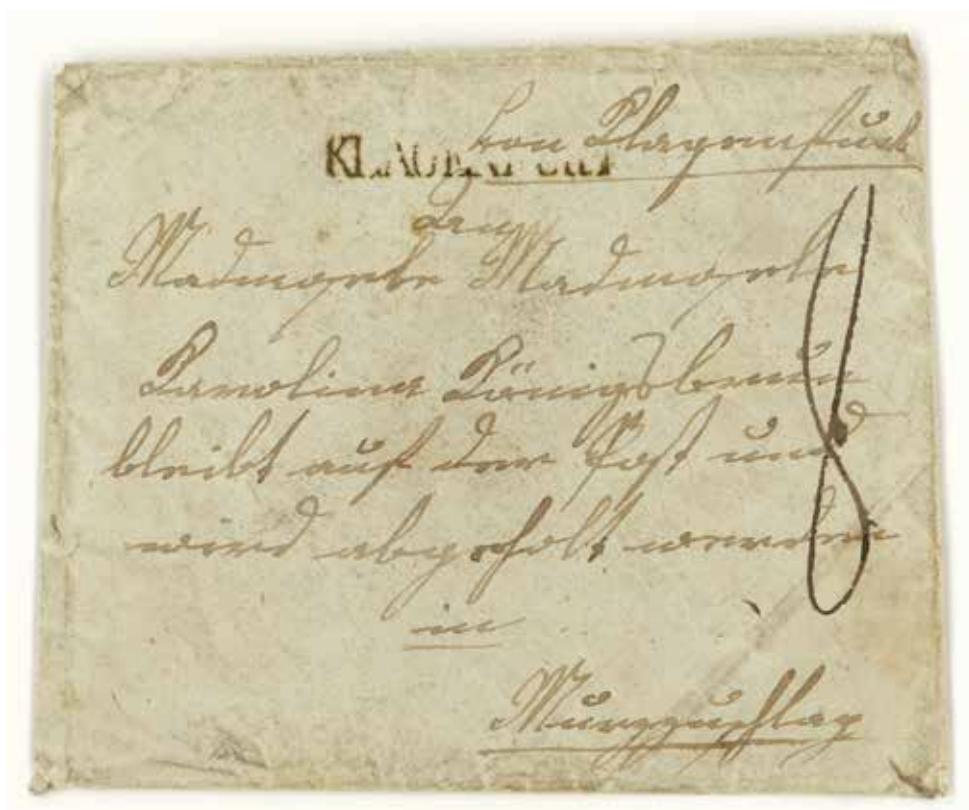 von Klagenfurt
KLAGENFURT
Madmosele Madmosele
Karolina Königsbrun
bleibt auf der Post und
wird abgeholt werden
8
in
Murzzuschlag